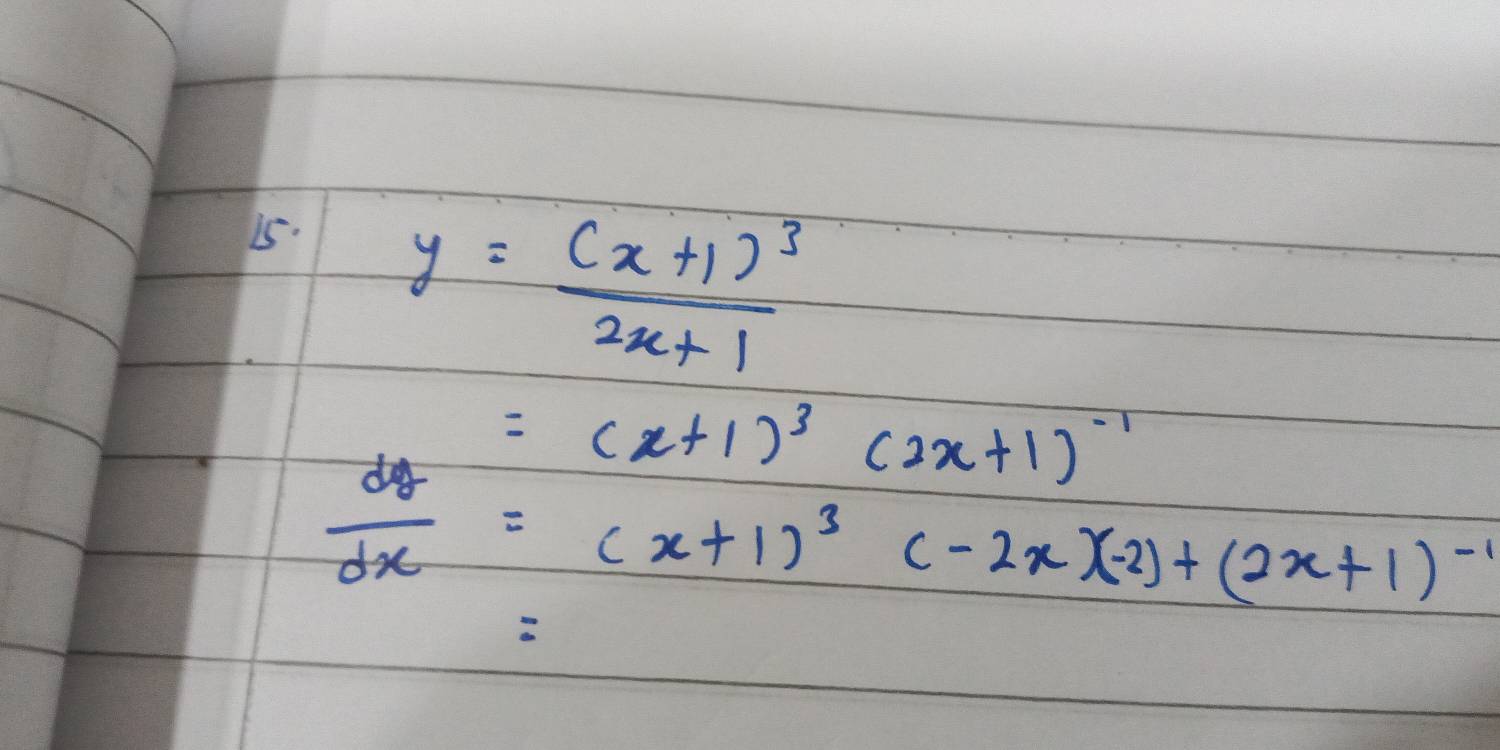 15. y = (x+1)³
2x+1
= (x+1)³ (2x+1)⁻¹
dy
dx
= (x+1)³ (-2x)(-2)+(2x+1)⁻¹
=